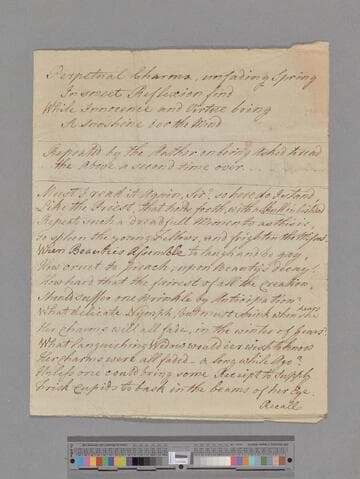 Perpetual Charms, unfading Spring
In sweet Reflexion find
While Innocence and Virtue bring
A Sunshine o'er the Mind
Repeated by the Author on being asked to read
the above a second time over.
Must I read it again, Sir? so here do I stand
Like the Priest, that holds forth, with a skull in his hand
Repeat such a dreadfull Memento as this is
to spleen the young Fellows, and frighten the Misses
When Beauties assemble to laugh and be gay,
How cruel to preach, upon Beauty's decay!
How hard that the fairest of all the creation,
Shou'd suffer one wrinkle by Anticipation
What delicate Nymph, but must shrink when she hears
Her charms will all fade, in the winter of years?
What languishing Widow would e'er wish to know
Her charms were all faded a long while ago?
Unless one could bring some Receipt to supply
Fresh Cupids to bask in the beams of her Eye.
Recall